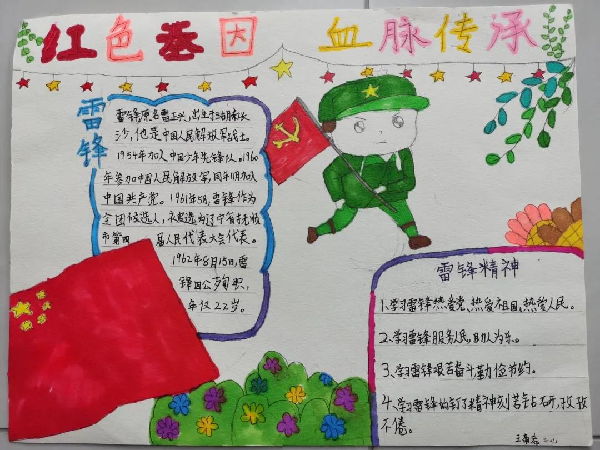 红色基因 血脉传承
雷锋
雷锋原名雷正兴,出生于湖南长
沙,他是中国人民解放军战士。
1954年加入中国少年先锋队。1960
年参加中国人民解放军,同年11月加入
中国共产党。1961年5月,雷锋作为
全团候选人,被选为辽宁省抚顺
市第四届人民代表大会代表。
1962年8月15日,雷
锋因公殉职,
年仅22岁。
雷锋精神
1、学习雷锋热爱党,热爱祖国,热爱人民。
2、学习雷锋服务人民,助人为乐。
3、学习雷锋艰苦奋斗勤俭节约。
4、学习雷锋的钉子精神刻苦钻研,孜孜
不倦。